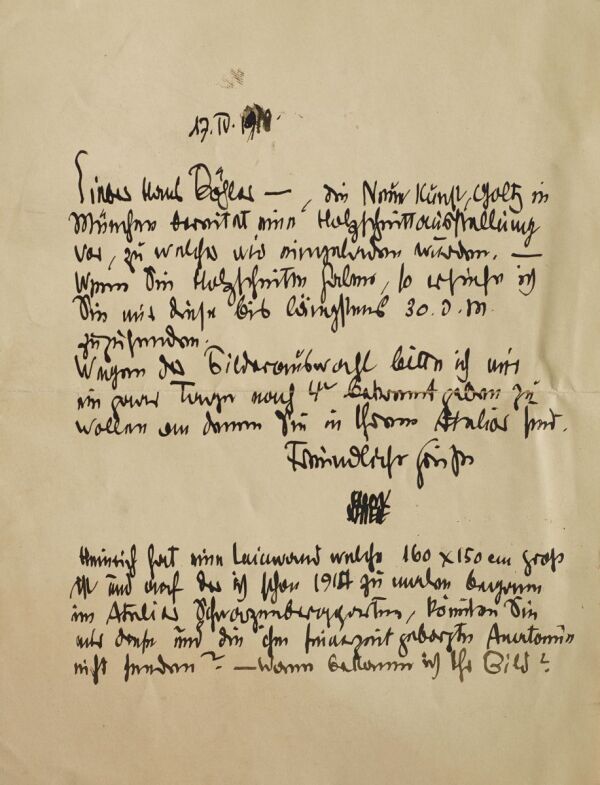 17. IV. 1918.
Lieber Hans Böhler —, die Neue Kunst, Goltz in
München bereitet eine Holzschnittausstellung
vor, zu welcher wir eingeladen wurden. —
Wenn Sie Holzschnitte haben, so ersuche ich
Sie mir diese bis längstens 30. d. M.
zuzusenden.
Wegen der Bilderauswahl bitte ich mir
ein paar Tage nach 4h bekannt geben zu
wollen an denen Sie in Ihrem Atelier sind.
Freundliche Grüße
Heinrich hat eine Leinwand welche 160 x 150 cm groß
ist und auf der ich schon 1914 zu malen begann
im Atelier Schwarzenberggarten, könnten Sie
mir diese und die ihm seinerzeit geborgte Anatomie
nicht senden? — Wann bekomm ich Ihr Bild?